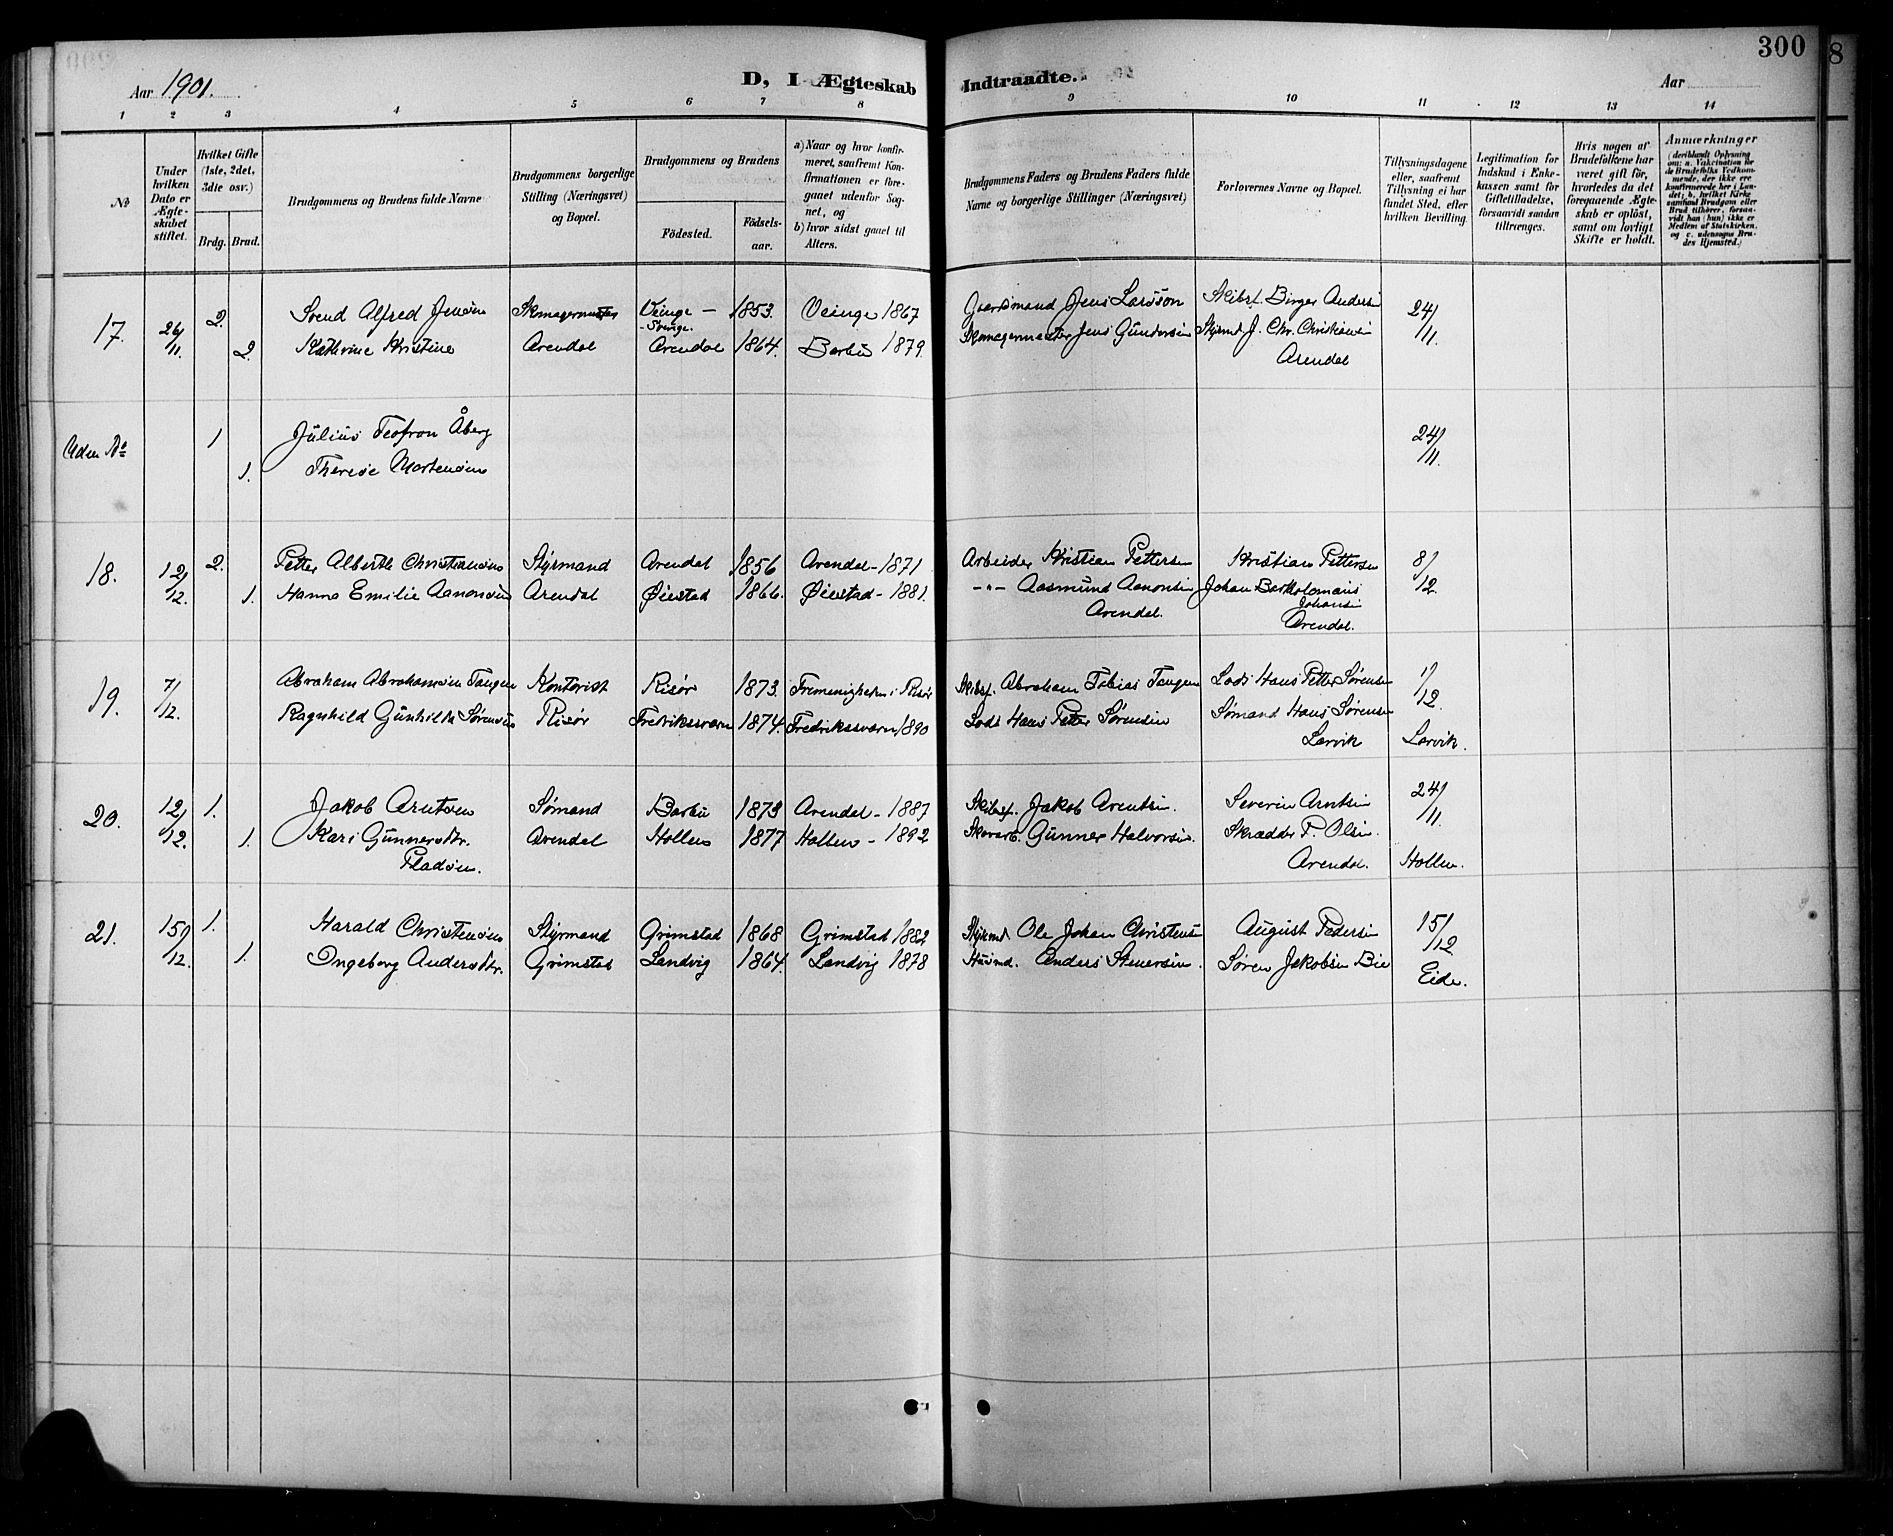 300
8
Aar 1901.
D, I Ægteskab Indtraadte.
Aar
1 2 3 4 5 6 7 8 9 10 11 12 13 14
№
Under hvilken Dato er Ægteskabet stiftet.
Hvilket Gifte (1ste, 2det, 3die osv.)
Brdg. Brud.
Brudgommens og Brudens fulde Navne
Brudgommens borgerlige Stilling (Næringsvei) og Bopæl.
Brudgommens og Brudens
Födested. Födselsaar.
a) Naar og hvor konfirmeret, saafremt Konfirmationen er foregaaet udenfor Sognet, og
b) hvor sidst gaaet til Alters.
Brudgommens Faders og Brudens Faders fulde Navne og borgerlige Stillinger (Næringsvei)
Forlovernes Navne og Bopæl.
Tillysningsdagene eller, saafremt Tillysning ei har fundet Sted, efter hvilken Bevilling.
Legitimation for Indskud i Enkekassen samt for Giftetilladelse, forsaavidt saadan tiltrænges.
Hvis nogen af Brudefolkene har været gift för, hvorledes da det foregaaende Ægteskab er oplöst, samt om lovligt Skifte er holdt.
Anmærkninger
(deriblandt Oplysning om: a. Vakcination for de Brudefolks Vedkommende, der ikke ere konfirmerede her i Landet; b. hvilket Kirkesamfund Brudgom eller Brud tilhører, forsaavidt han (hun) ikke er Medlem af Statskirken, og c. udensogns Brudes Hjemsted.)
17. 26/11. 2. Svend Alfred Jensen Skomagermester Veinge – Svinge. 1853. Veinge 1867 Gaardmand Jens Larsson Skibsf. Birger Andersen 24/11.
2. Kathrine Kristine Arendal Arendal 1864. Barbu 1879. Skomagermester Jens Gundersen Styrmd J. Chr. Christensen
Arendal
Uden № 1 Julius Teofron Åberg 24/11.
1. Therese Mortensen
18. 12/12. 2. Petter Alberth Christiansen Styrmand Arendal 1856 Arendal – 1871 Arbeider Kristian Pettersen Kristian Pettersen 8/12.
1. Hanna Emilie Aanonsen Arendal Øiestad 1866. Øiestad – 1881. –"– Aasmund Aanonsen Johan Bartholomæus Johansen
Arendal. Arendal.
19. 7/12. Abraham Abrahamsen Tangen Kontorist Risør 1873. Frimenigheden i Risør Skibsf. Abraham Tobias Tangen Lods Hans Petter Sørensen 1/12.
Ragnhild Gunhilde Sørensen Risør Fredriksværn 1874. Fredriksværn 1890 Lods Hans Petter Sørensen Sømand Hans Sørensen
Larvik Larvik.
20. 12/12. 1. Jakob Arntsen Sømand Barbu 1873 Arendal – 1887 Skibsf. Jakob Arentsen. Severin Arntsen 24/11.
1. Kari Gunnersdtr. Arendal Hollen 1877 Hollen – 1892 Skovarb. Gunner Halvorsen. Skrædder T. Olsen.
Pladsen. Arendal. Hollen.
21. 15/12. 1. Harald Christensen Styrmand Grimstad 1868 Grimstad 1882 Styrmd Ole Johan Christensen August Pedersen 15/12
1. Ingeborg Andersdtr. Grimstad Landvig 1864. Landvig 1878 Husmd. Anders Stenersen. Søren Jakobsen Bie
Eide.